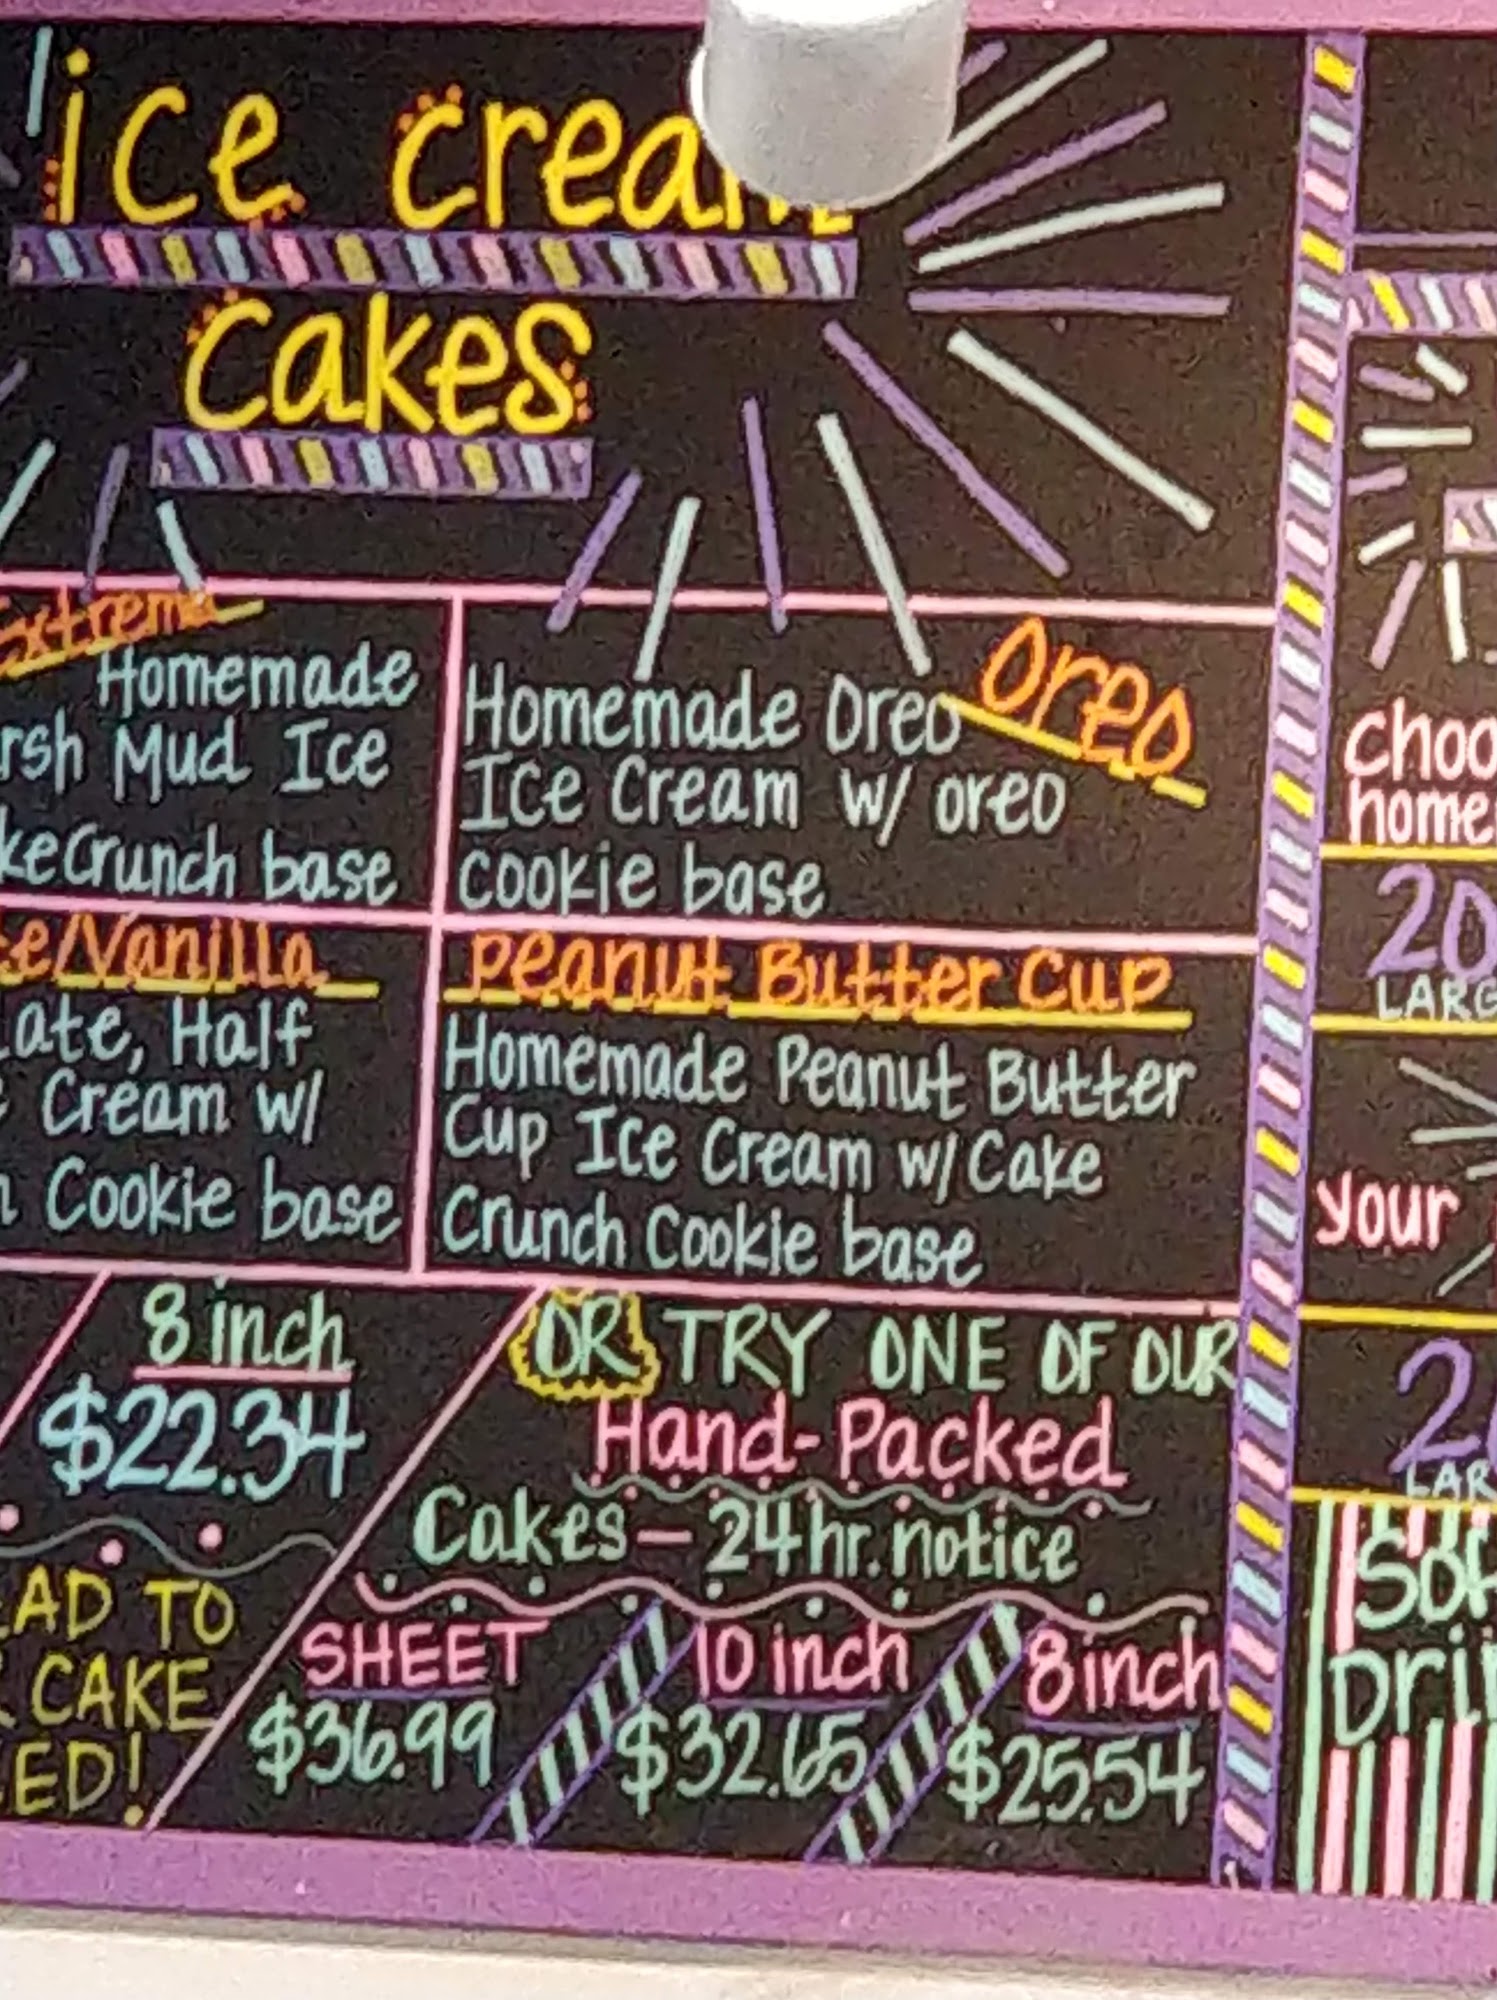 ice cream
cakes
Extreme
Homemade
rsh Mud Ice
ke Crunch base
Oreo
Homemade Oreo
Ice Cream w/ oreo
cookie base
te/Vanilla
Late, Half
Cream w/
Cookie base
Peanut Butter Cup
Homemade Peanut Butter
Cup Ice Cream w/ Cake
Crunch Cookie base
8 inch
$22.34
EAD TO
CAKE
ED!
OR TRY ONE OF OUR
Hand-Packed
Cakes – 24 hr. notice
SHEET 10 inch 8 inch
$36.99 $32.65 $25.54
Choo
home
20
LARG
your
2
LAR
Sof
Dri